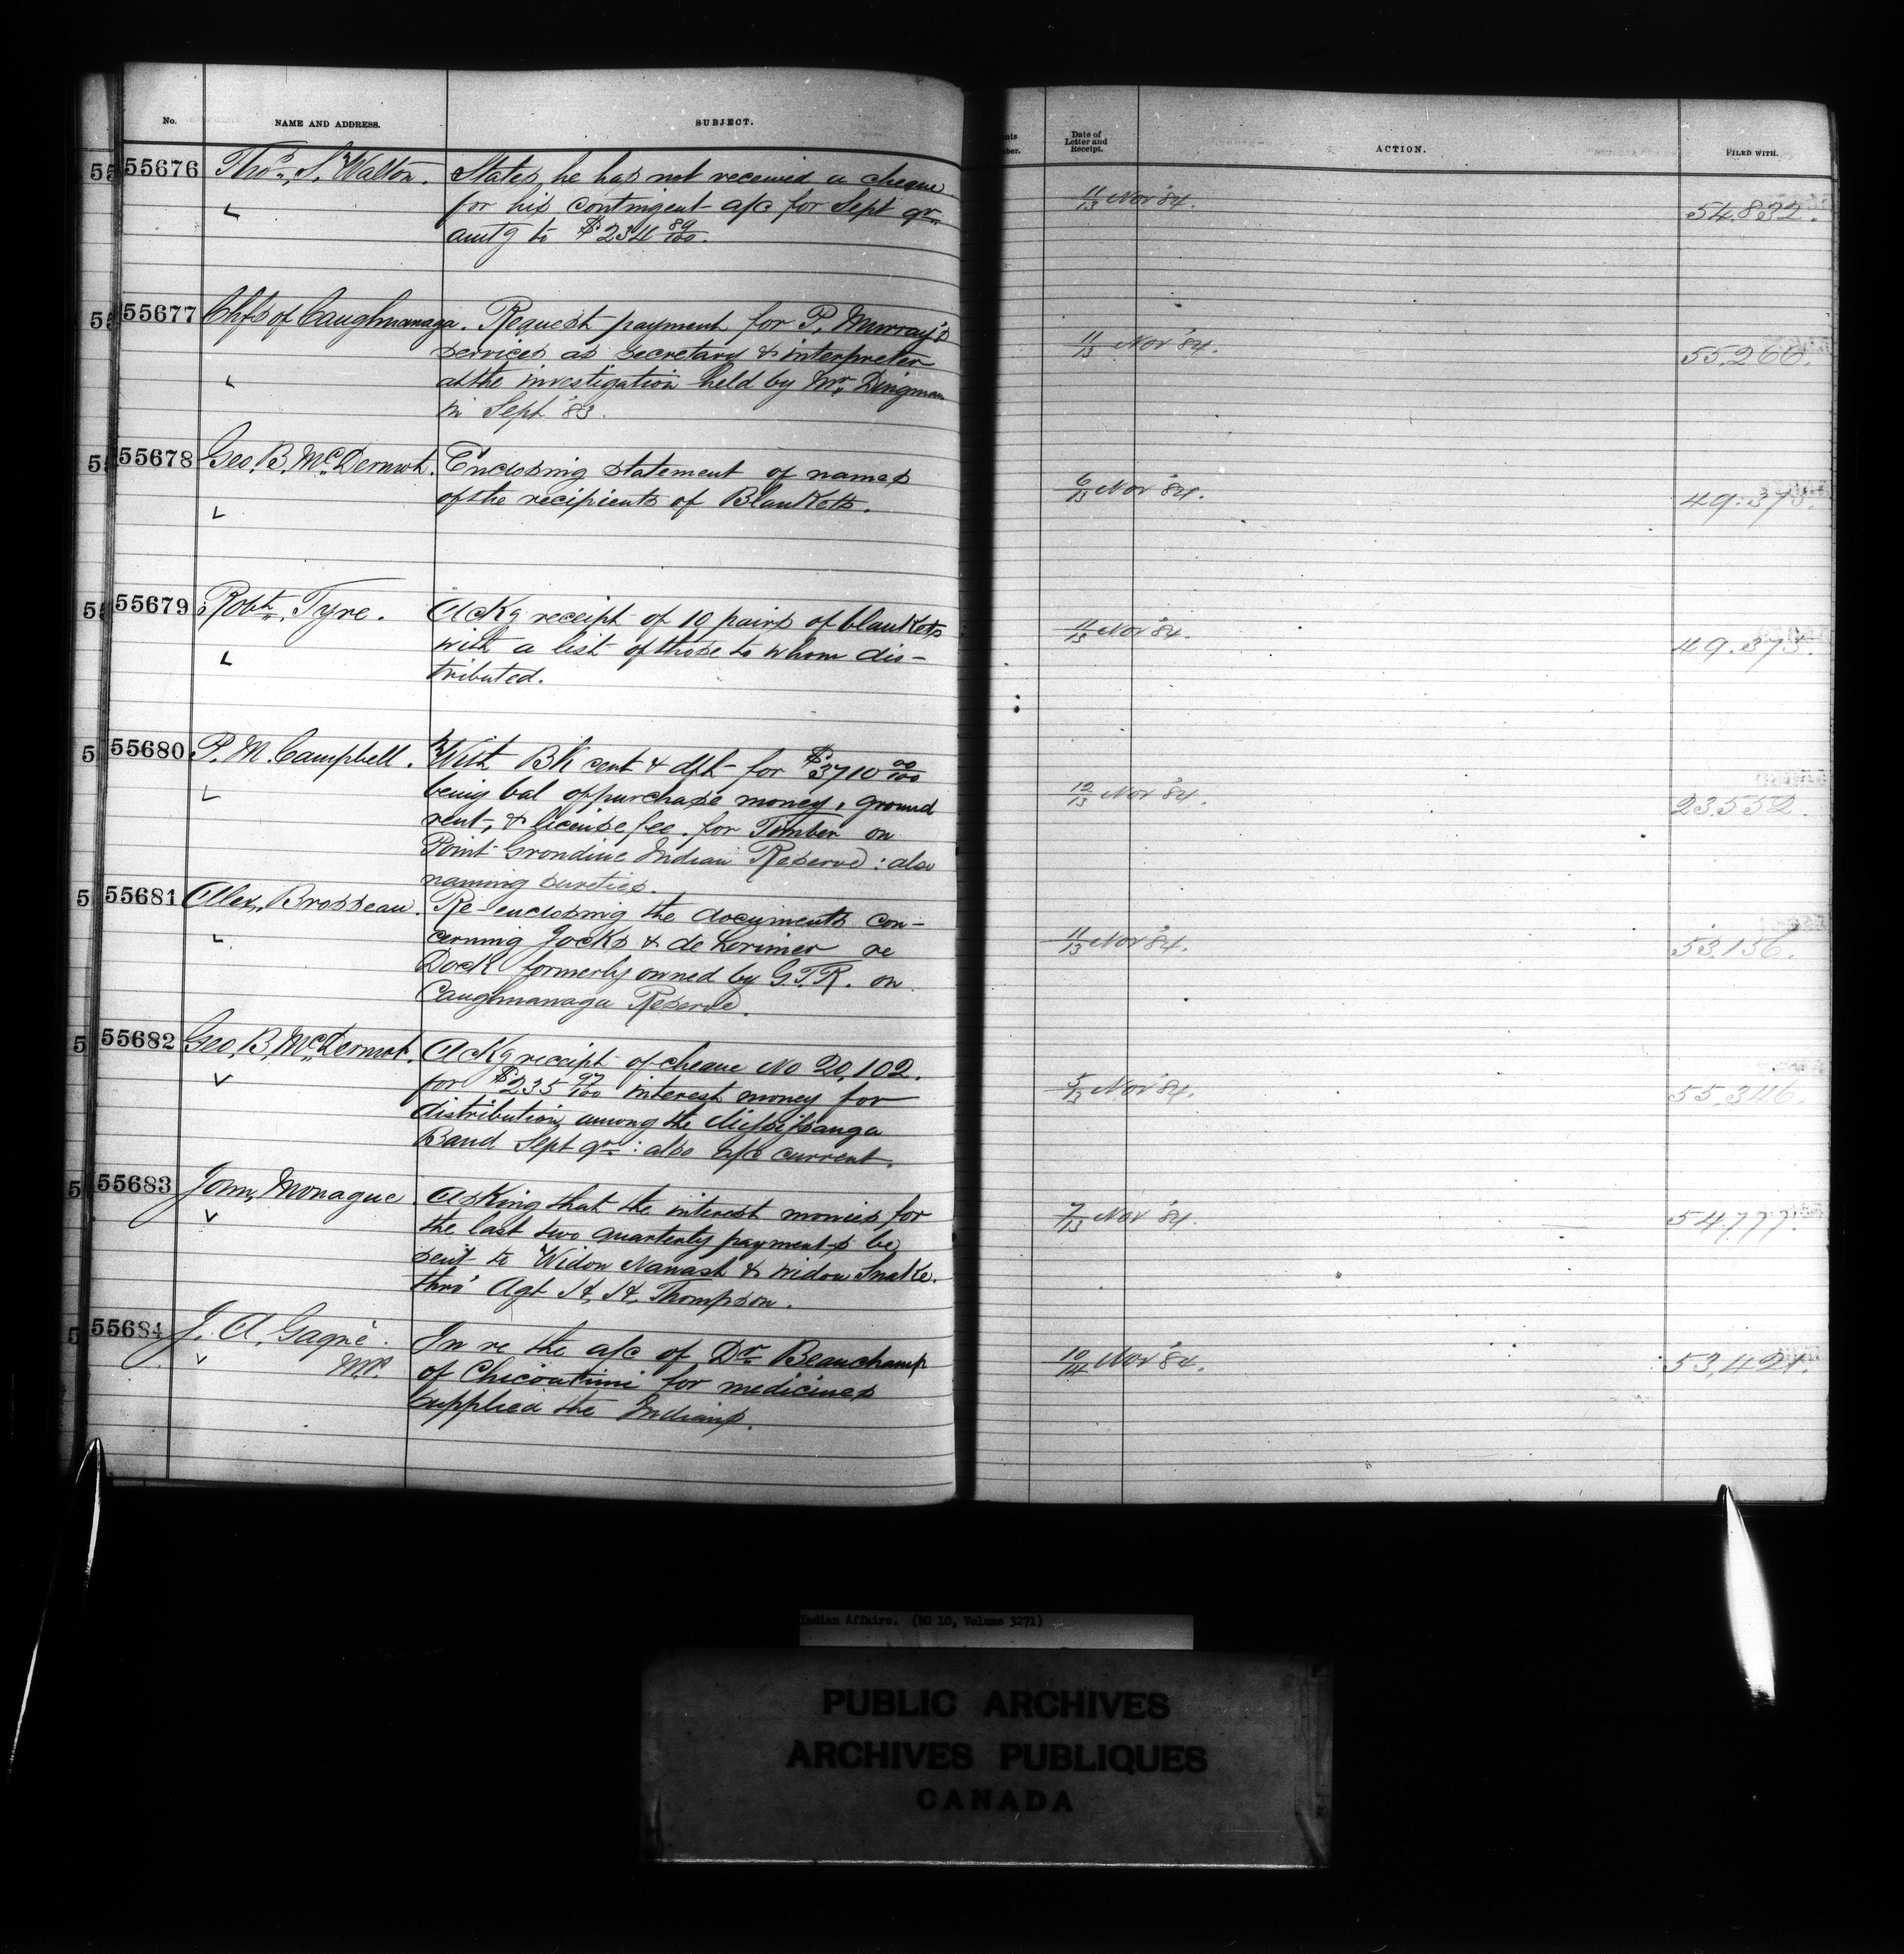 No. NAME AND ADDRESS. SUBJECT. Date of Letter and Receipt. ACTION. FILED WITH.
55676 Thos. S. Walton. States he has not received a cheque
for his contingent a/c for Sept qr.
amtg to $234 89/100.
11/13 Nov '84. 54.832.
55677 Chfs of Caughnawaga. Request payment for P. Murray's
services as secretary & interpreter
at the investigation held by Mr. Dingman
in Sept '83.
11/13 Nov '84. 55,260.
55678 Geo. B. McDermot. Enclosing statement of names
of the recipients of Blankets.
6/13 Nov '84. 49.375.
55679 Robt. Tyre. Ackg receipt of 10 pairs of blankets
with a list of those to whom dis-
tributed.
11/13 Nov '84. 49.375.
55680 P. M. Campbell. With Bk cert & dft for $3710 00/100
being bal of purchase money, ground
rent, & license fee. for Timber on
Point Grondine Indian Reserve: also
naming sureties.
12/13 Nov '84. 23.552.
55681 Alex. Brosseau. Re-enclosing the documents con-
cerning Jocks & de Lorimer re
Dock formerly owned by G.T.R. on
Caughnawaga Reserve.
11/13 Nov '84. 53,156.
55682 Geo. B. McDermot. Ackg receipt of cheque No 20,102.
for $235 97/100 interest money for
distribution among the Mississauga
Band Sept qr: also a/c current.
5/13 Nov '84. 55,346.
55683 John Monague Asking that the interest monies for
the last two quarterly payments be
sent to Widow Nanash & widow Snake.
thro' Agt H. H. Thompson.
7/13 Nov '84. 54,777.
55684 J. A. Gagné. In re the a/c of Dr. Beauchamp
M.P. of Chicoutimi for medicines
supplied the Indians.
10/14 Nov '84. 53,421.
Indian Affairs. (RG 10, Volume 3271)
PUBLIC ARCHIVES
ARCHIVES PUBLIQUES
CANADA